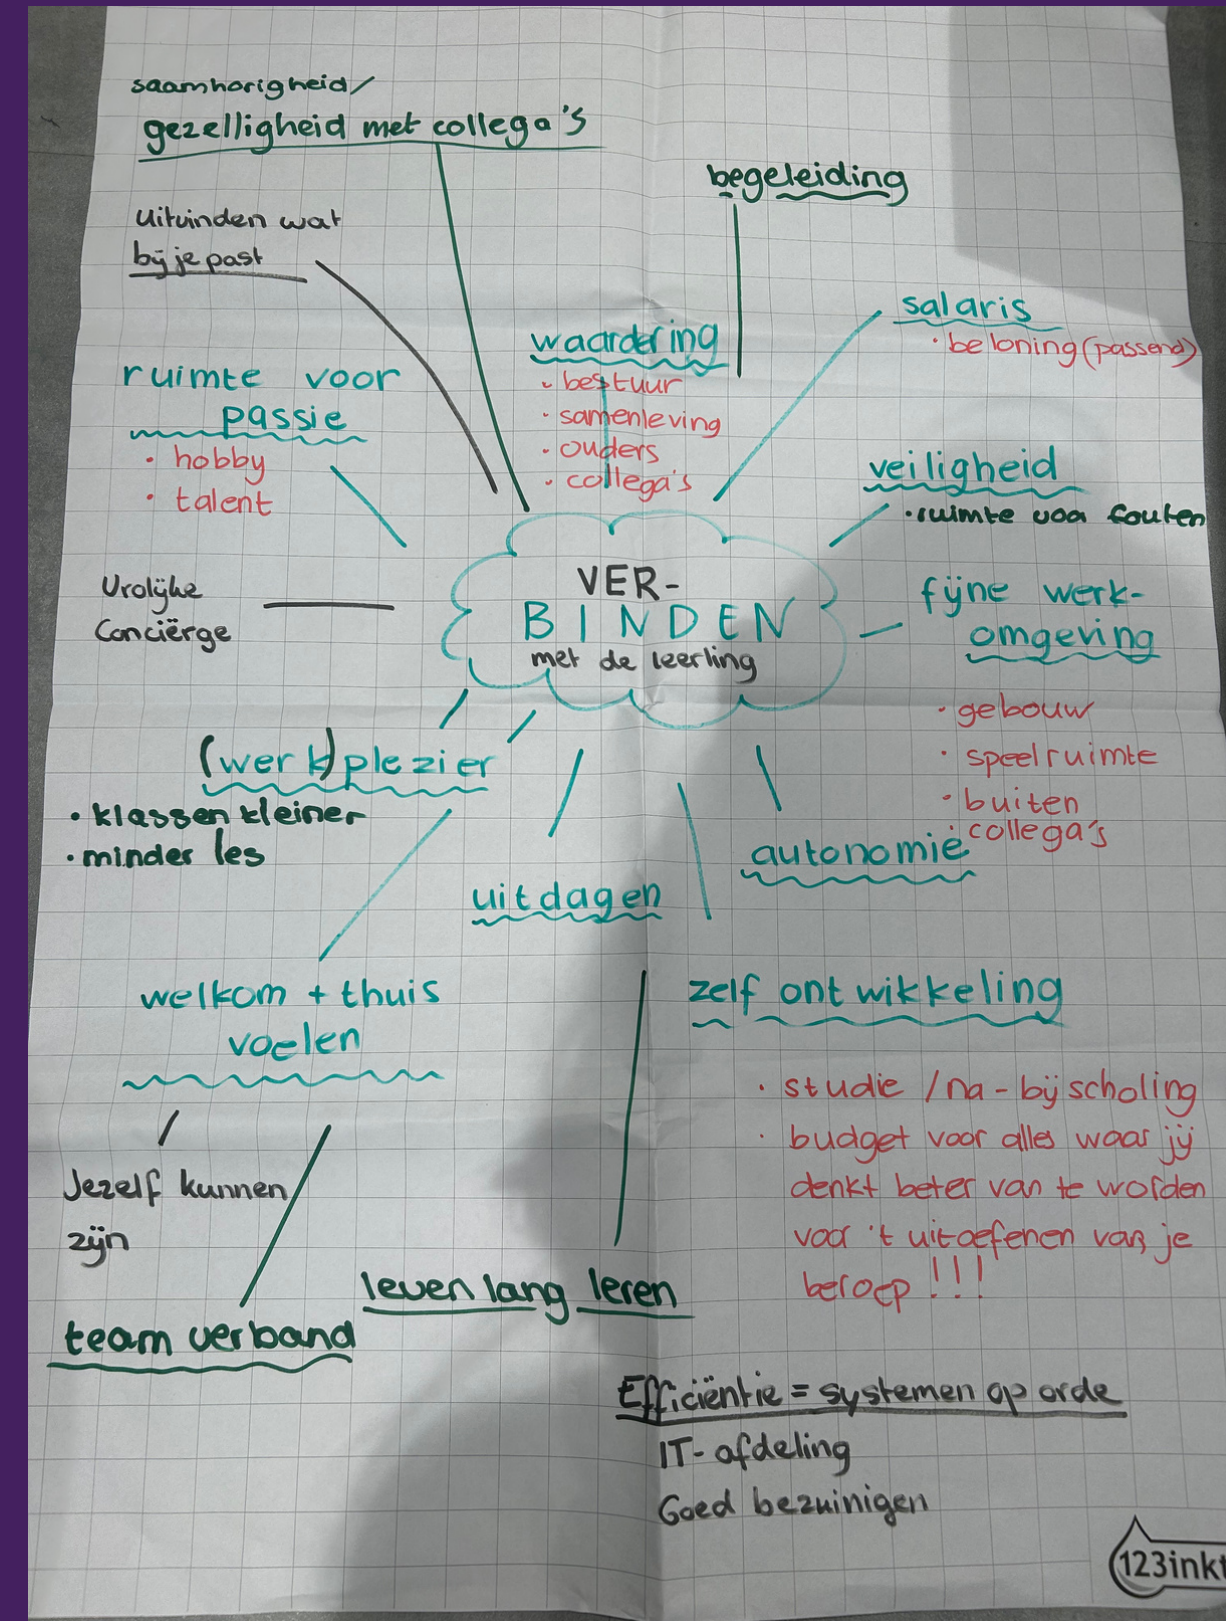 saamhorigheid/
gezelligheid met collega's
begeleiding
Uitvinden wat
bij je past
salaris
· beloning (passend)
waardering
· bestuur
· samenleving
· ouders
· collega's
ruimte voor
passie
· hobby
· talent
veiligheid
· ruimte voor fouten
Vrolijke
Conciërge
VER-
BINDEN
met de leerling
fijne werk-
omgeving
· gebouw
· speelruimte
· buiten
· collega's
(werk)plezier
· klassen kleiner
· minder les
autonomie
uitdagen
welkom + thuis
voelen
zelf ontwikkeling
· studie / na-bijscholing
· budget voor alles waar jij
denkt beter van te worden
voor 't uitoefenen van je
beroep !!!
Jezelf kunnen
zijn
leven lang leren
team verband
Efficiëntie = systemen op orde
IT-afdeling
Goed bezuinigen
123inkt